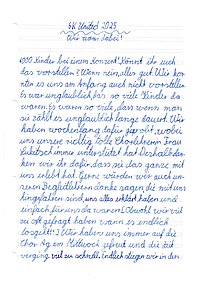 6K United 2025
Wir waren dabei!
6000 Kinder bei einem Konzert! Könnt ihr euch
das vorstellen? Wenn nein, alles gut. Wir konn
ten es uns am Anfang auch nicht vorstellen.
Es war unglaublich, das so viele Kinder da
waren. Es waren so viele, dass wenn man
sie zählt es unglaublich lange dauert. Wir
haben wochenlang dafür geprobt, wobei
uns unsere richtig tolle Chorlehrerin Frau
immer unterstützt hat. Deshalb dan
ken wir ihr dafür, dass sie das ganze mit
uns erlebt hat. Gerne würden wir auch un
seren Begleitlehrern danke sagen die mit uns
hingefahren sind, uns alles erklärt haben und
einfach für uns da waren! (Obwohl wir viel
zu oft gefragt haben wann es endlich
losgeht!) Wir haben uns immer auf die
Chor Ag am Mittwoch gefreut und die Zeit
verging viel zu schnell. Endlich stiegen wir in den